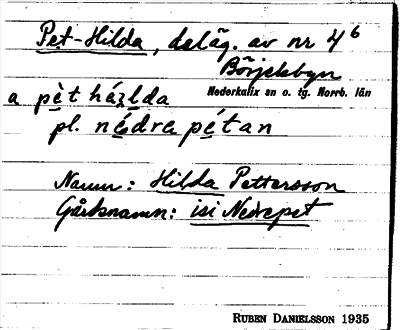 Pet-Hilda, deläg. av nr 4⁶
Börjelsbyn
Nederkalix sn o. tg. Norrb. län
a pèt házlda
pl. nédra pétan
Namn: Hilda Pettersson
Gårdsnamn: isi Nedrepet
RUBEN DANIELSSON 1935